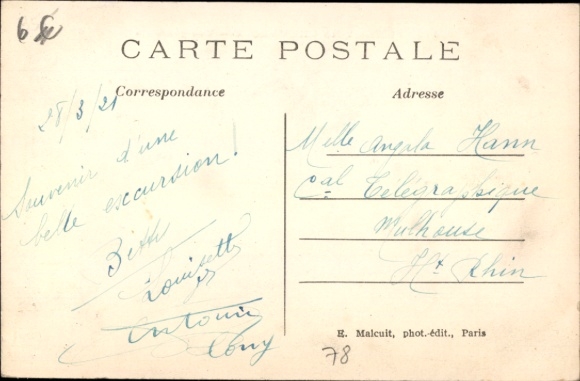 CARTE POSTALE
Correspondance
28/3/21
Souvenir d'une
belle excursion!
Louisette
Antoine
Adresse
Melle Angela Hann
Cal Télégraphique
Mulhouse
Ht Rhin
E. Malcuit, phot.-édit., Paris
78